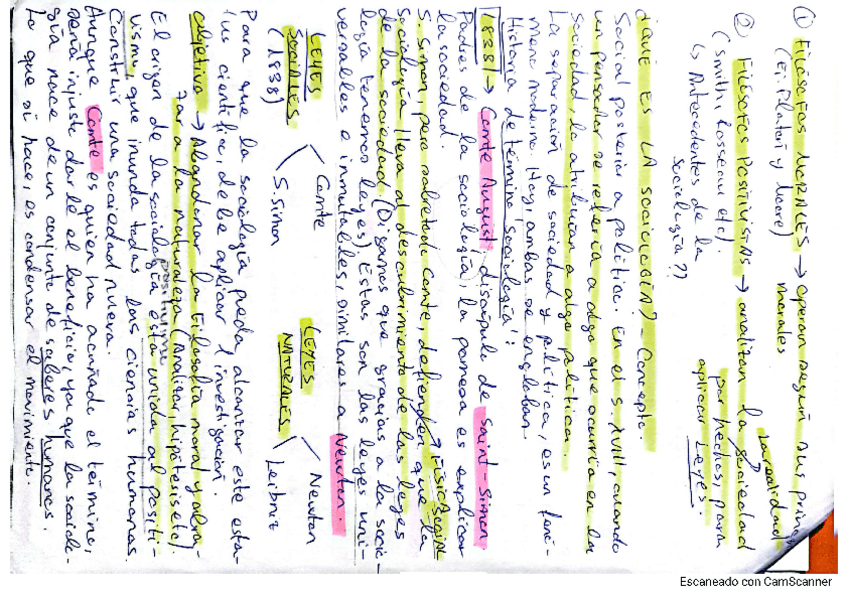 ① FILÓSOFOS MORALES → operan según sus princi
(Ej. Platón y More) morales
② FILÓSOFOS POSITIVISTAS → analizan la sociedad
la realidad
(Smith, Rosseau etc.) por hechos, para
↳ Antecedentes de la aplicar leyes
sociología??
¿QUÉ ES LA SOCIOLOGÍA? - Concepto.
Social posterior a política. En el s. XVIII, cuando
un pensador se refería a algo que ocurría en la
sociedad, lo atribuían a algo política.
La separación de sociedad y política, es un fenó-
meno moderno. Hoy, ambas se engloban.
Historia de término sociología!:
1838 → Comte August, discípulo de Saint-Simon
Padres de la sociología, la ponen es explicar
la sociedad. FÍSICA SOCIAL
S. Simon, pero sobretodo Comte, defienden que la
sociología lleva al descubrimiento de las leyes
de la sociedad. (Digamos que gracias a la socio-
logía tenemos leyes) Estas son las leyes uni-
versables e inmutables, similares a Newton.
LEYES SOCIALES (1838) Comte
S. Simon
LEYES NATURALES Newton
Leibniz
Para que la sociología pueda alcanzar este esta-
tus científico, debe aplicar 1 investigación.
objetiva → Abandonar la Filosofía moral y abra-
zar a la naturaleza (Analizar, hipótesis etc).
positivismo
El origen de la sociología esta unida al positi-
vismo, que inunda todas las ciencias humanas.
Construir una sociedad nueva.
Aunque Comte es quien ha acuñado el término,
será injusto darle el beneficio, ya que la sociolo-
gía nace de un conjunto de saberes humanos.
Lo que si hace, es condensar el movimiento
Escaneado con CamScanner